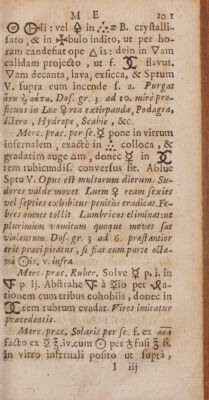 M E 101
li: vel in B. crystalli-
sato, & in tubulo indito, ut per ho-
ram candefiat ope is: dein in am
calidam projecto, ut f. flavus.
am decanta, lava, exsicca, & Sptum
V. supra cum incende s. a. Purgat
ἄνω ἢ κάτω. Dos. gr. 3. ad 10. mire pro-
ficuus in Lue ♀ rea extirpanda, Podagra,
Ictero, Hydrope, Scabie, &c.
Merc. præc. per se. ☿ pone in vitrum
infernalem, exactè in colloca, &
gradatim auge △m, donec ☿ in
rem rubicundiss. conversus sit. Ablue
Sptu V. Opus est multorum dierum. Su-
dores valde movet Luem ♀ ream sexies
vel septies exhibitus penitus eradicat. Fe-
bres omnes tollit. Lumbricos eliminat: ut
plurimum vomitum quoque movet sat
violentum. Dos. gr. 3 ad 6. præstantior
erit præcipitatus, si fiat cum parte octa-
va ☉is. v. infra
Merc. præc. Ruber. Solve ☿ p. i. in
p. ij. Abstrahe à io per -
tionem cum tribus cohobiis, donec in
rem rubrum evadat. Vires imitatur
præcedentis.
Merc. præc. Solaris per se. f. ex
facto ex ☿ ℥.iv. cum ☉ per fusi ℥ ß.
in vitro infernali posito ut suprà,
I iij